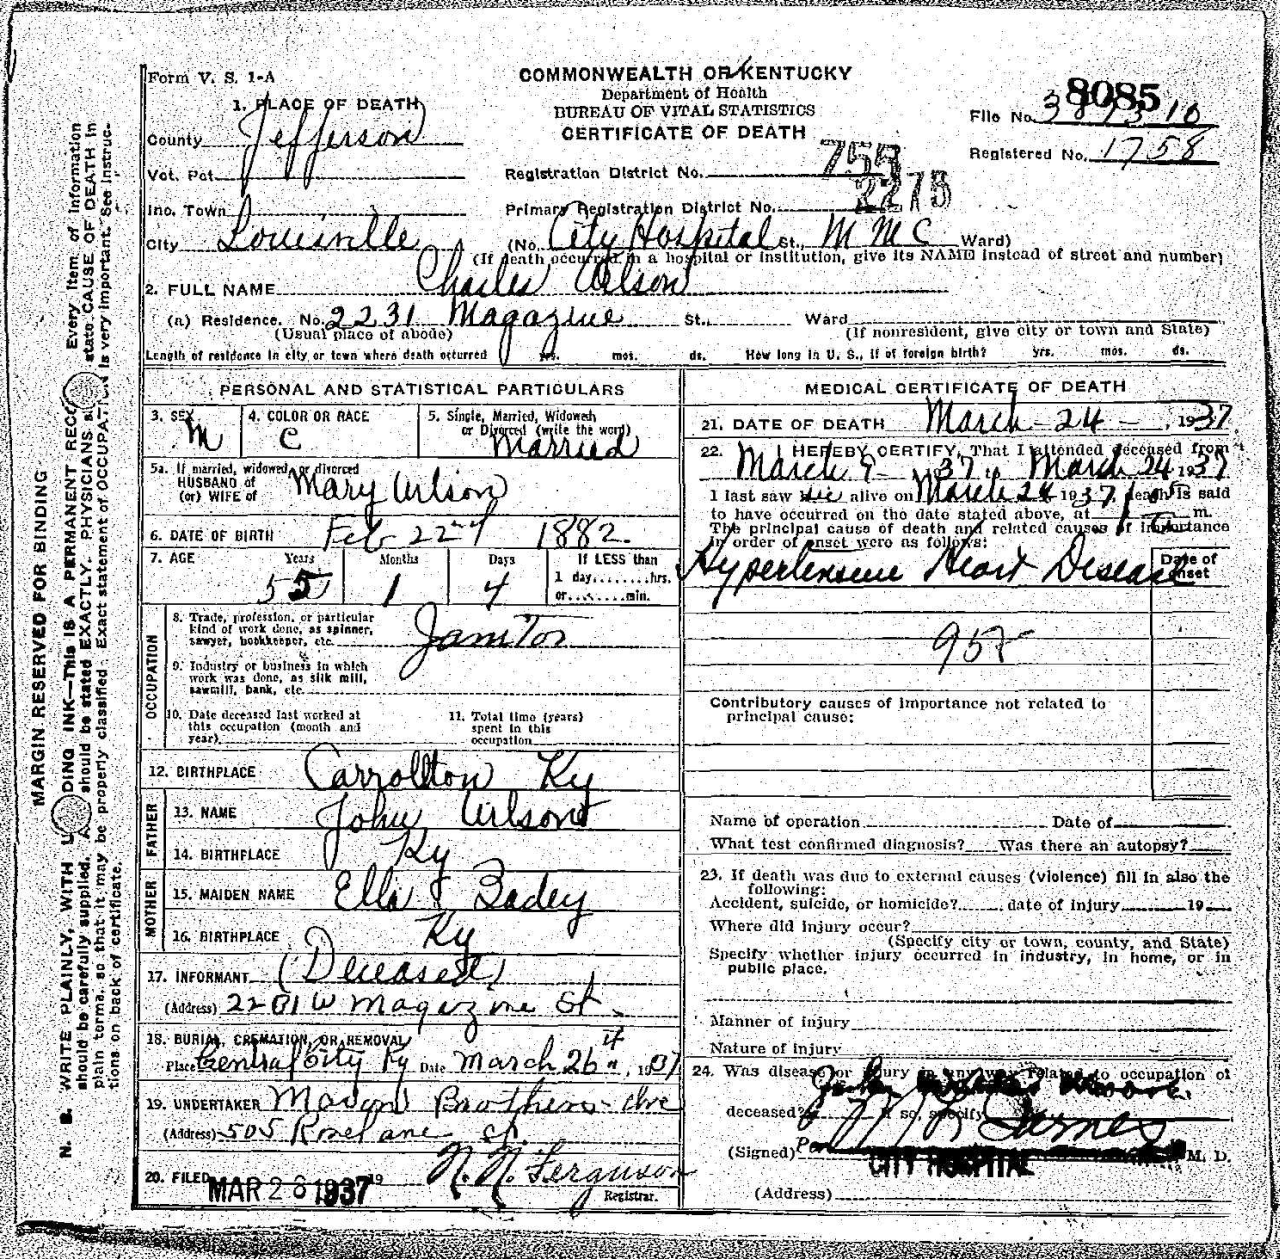 Form V. S. 1-A
COMMONWEALTH OF KENTUCKY
Department of Health
BUREAU OF VITAL STATISTICS
CERTIFICATE OF DEATH
8085
File No.
Registered No. 1758
1. PLACE OF DEATH
County Jefferson
Vot. Pct.
Registration District No. 755
Inc. Town
Primary Registration District No. 2275
City Louisville (No. City Hospital St., M M C Ward)
(If death occurred in a hospital or institution, give its NAME instead of street and number)
2. FULL NAME Charles Wilson
(a) Residence. No. 2231 Magazine St., Ward
(Usual place of abode) (If nonresident, give city or town and State)
Length of residence in city or town where death occurred yrs. mos. ds. How long in U. S., if of foreign birth? yrs. mos. ds.
PERSONAL AND STATISTICAL PARTICULARS
3. SEX M
4. COLOR OR RACE C
5. Single, Married, Widowed
or Divorced (write the word)
Married
5a. If married, widowed or divorced
HUSBAND of
(or) WIFE of Mary Wilson
6. DATE OF BIRTH Feb 22nd 1882
7. AGE Years Months Days If LESS than
55 1 4 1 day, hrs.
or min.
OCCUPATION
8. Trade, profession, or particular
kind of work done, as spinner,
sawyer, bookkeeper, etc. Janitor
9. Industry or business in which
work was done, as silk mill,
sawmill, bank, etc.
10. Date deceased last worked at
this occupation (month and
year)
11. Total time (years)
spent in this
occupation
12. BIRTHPLACE Carrollton Ky
FATHER
13. NAME John Wilson
14. BIRTHPLACE Ky
MOTHER
15. MAIDEN NAME Ella Badey
16. BIRTHPLACE Ky
17. INFORMANT (Deceased)
(Address) 2231 W Magazine St.
18. BURIAL, CREMATION, OR REMOVAL
Place Central City Ky Date March 26th, 1937
19. UNDERTAKER Mason Brothers Inc
(Address) 505 Roselane
20. FILED MAR 26 1937 19 N. N. Ferguson
Registrar.
MEDICAL CERTIFICATE OF DEATH
21. DATE OF DEATH March - 24 - , 1937
22. I HEREBY CERTIFY, That I attended deceased from
March 9 - 1937 to March 24 1937
I last saw alive on March 24 1937, death is said
to have occurred on the date stated above, at m.
The principal cause of death and related causes of importance
in order of onset were as follows:
Date of
onset
Hypertensive Heart Disease
95
Contributory causes of importance not related to
principal cause:
Name of operation Date of
What test confirmed diagnosis? Was there an autopsy?
23. If death was due to external causes (violence) fill in also the
following:
Accident, suicide, or homicide? date of injury 19
Where did injury occur?
(Specify city or town, county, and State)
Specify whether injury occurred in industry, in home, or in
public place.
Manner of injury
Nature of injury
24. Was disease or injury in any way related to occupation of
deceased? If so, specify
(Signed) M. D.
CITY HOSPITAL
(Address)
MARGIN RESERVED FOR BINDING
N. B. WRITE PLAINLY, WITH UNFADING INK—This IS A PERMANENT RECORD. Every item of information
should be carefully supplied. AGE should be stated EXACTLY. PHYSICIANS should state CAUSE OF DEATH in
plain terms, so that it may be properly classified. Exact statement of OCCUPATION is very important. See instruc-
tions on back of certificate.